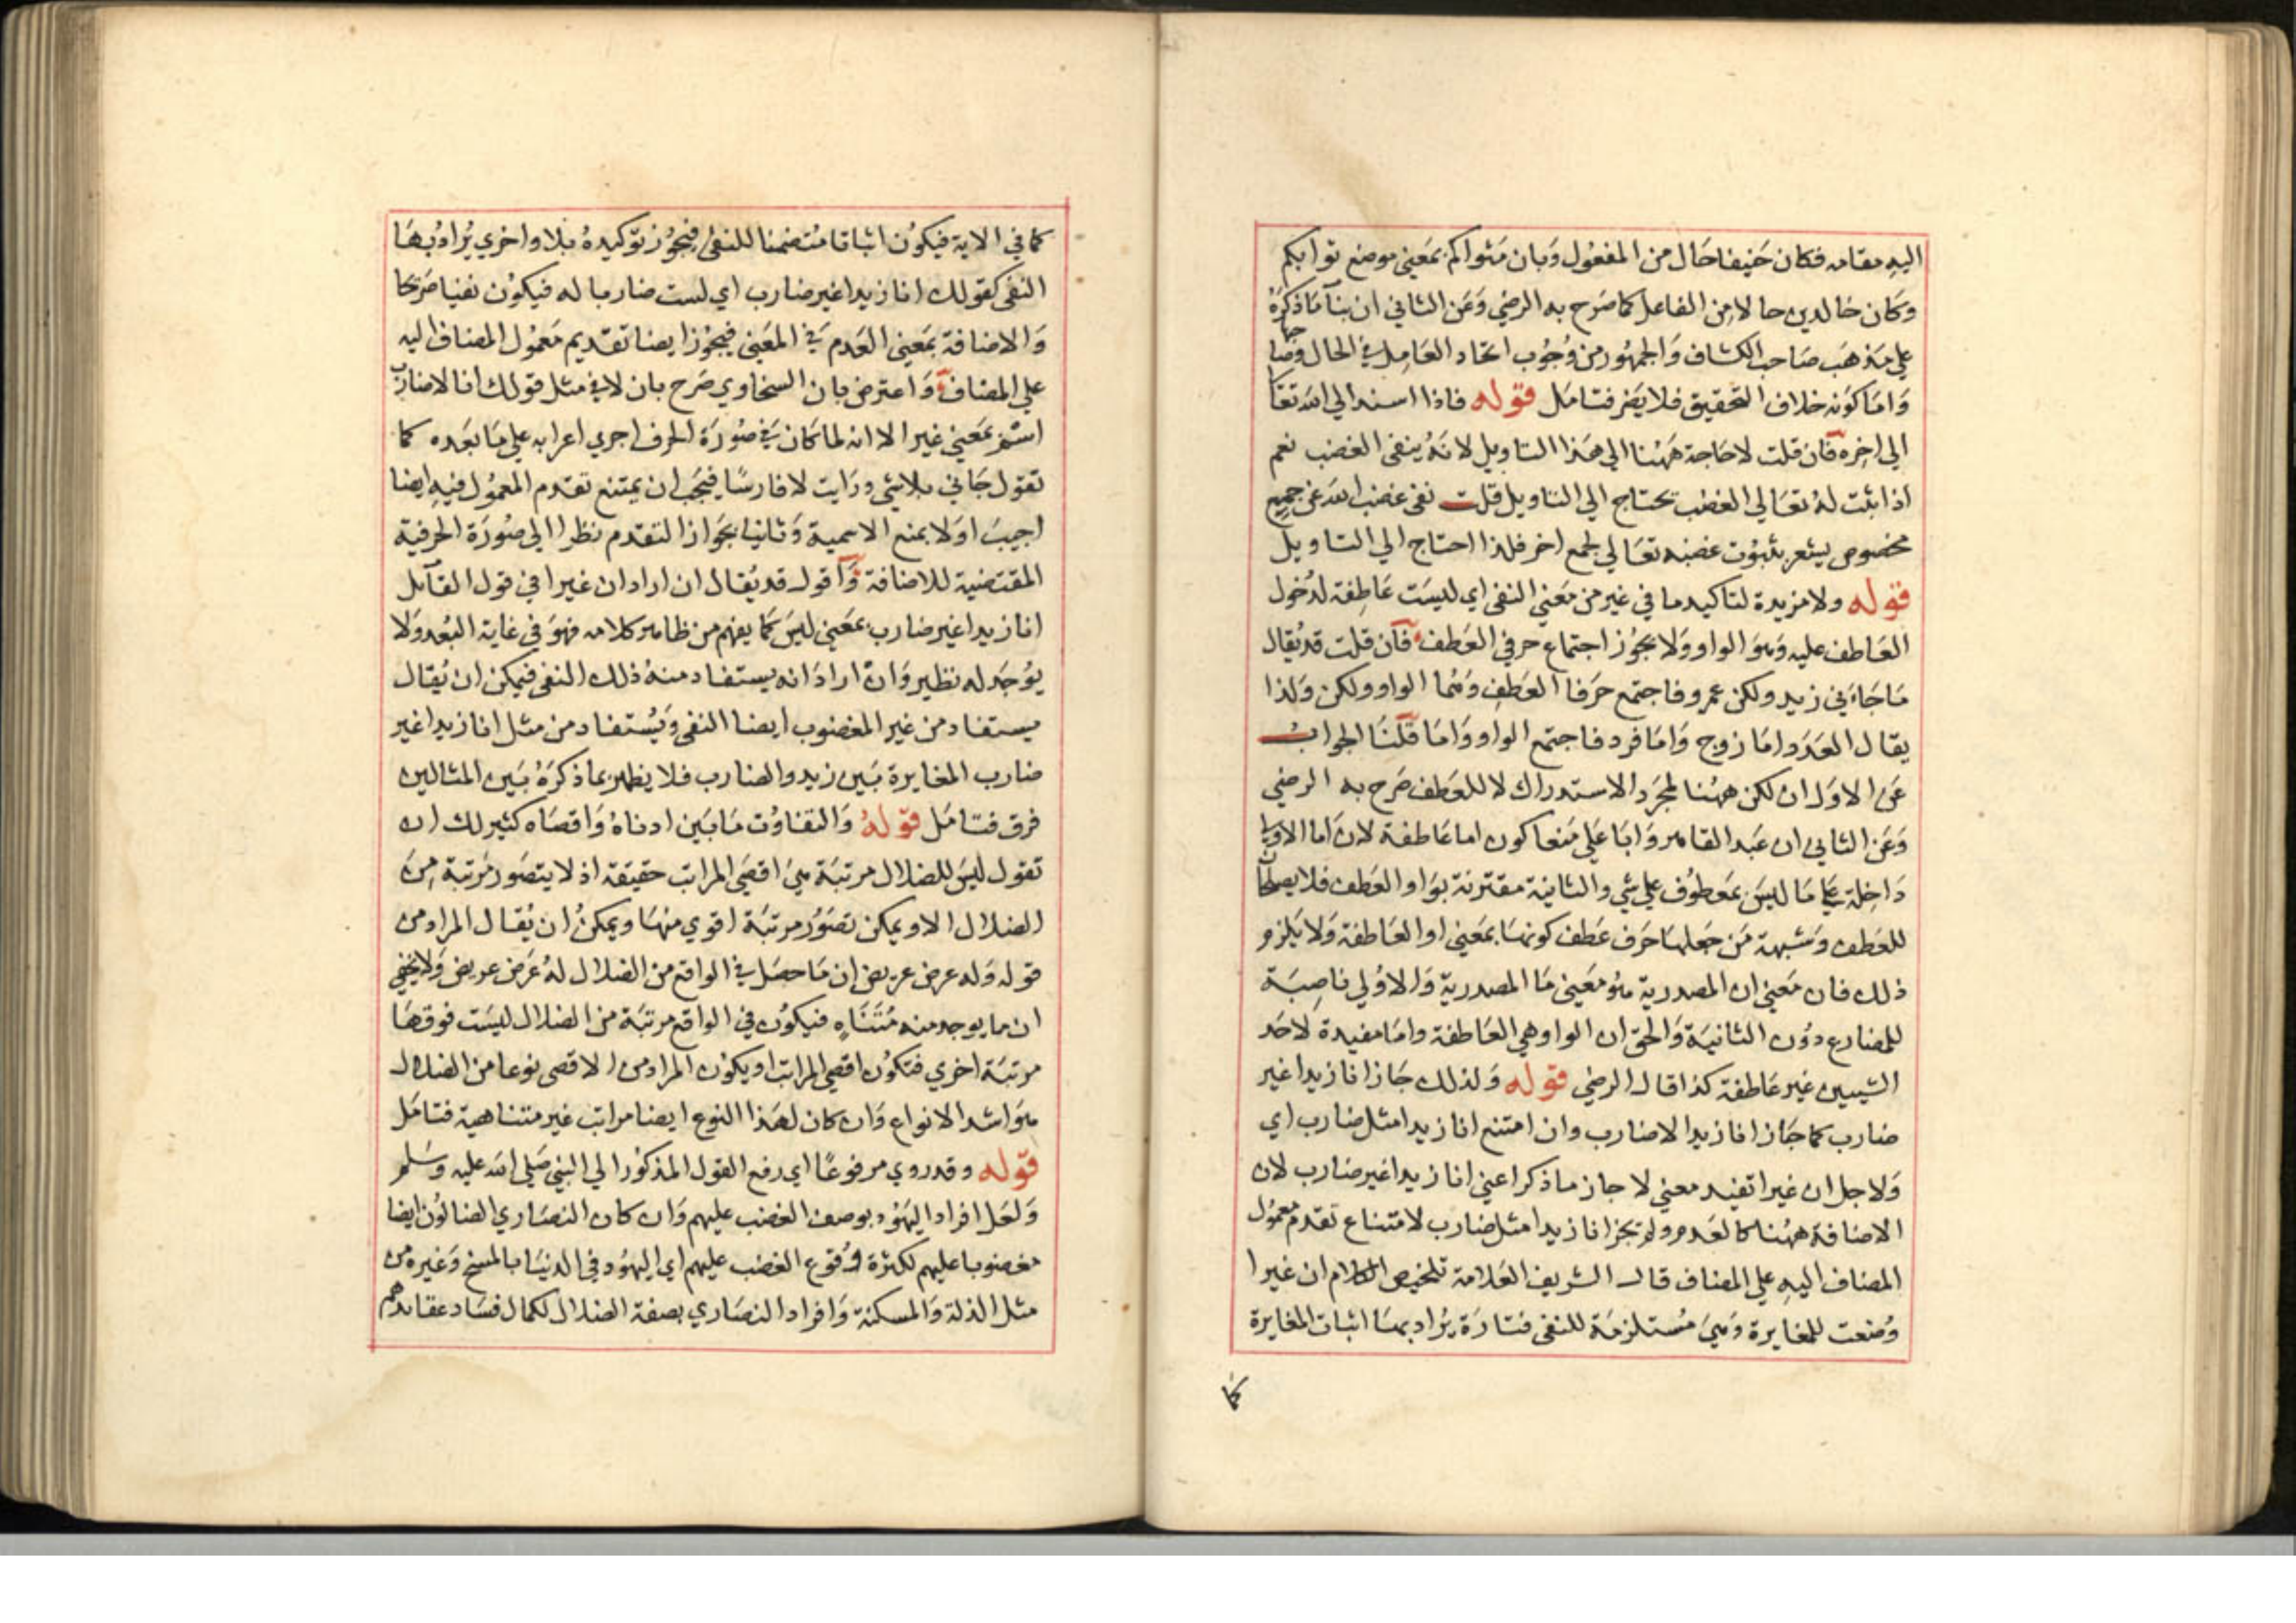 اليه مقامه فكان حنيفا حال من المفعول وبان مثواكم بمعني موضع ثوابكم
وكان خالدين حالا من الفاعل كما صرح به الرضي وعن الثاني ان بنآ ما ذكره
علي مذهب صاحب الكشاف والجمهور من وجوب اتحاد العامل في الحال وصاحبها
واما كونه خلاف التحقيق فلا يضر فتامل قوله فاذا اسند الي الله تعا
الي اخره فان قلت لا حاجة ههنا الي هذا التاويل لانه ينفي الغضب نعم
اذا ثبت له تعالي الغضب يحتاج الي التاويل قلت نفي غضب الله عن جميع
مخصوص يشعر بثبوت غضبه تعالي لجمع اخر فلذا احتاج الي التاويل
قوله ولا مزيدة لتاكيد ما في غير من معني النفي اي ليست عاطفة لدخول
العاطف عليه وهو الواو ولا يجوز اجتماع حرفي العطف فان قلت قد يقال
ما جاءني زيد ولكن عمرو فاجتمع حرفا العطف وهما الواو ولكن ولذا
يقال العدد اما زوج واما فرد فاجتمع الواو واما قلنا الجواب
عن الاول ان لكن ههنا لمجرد الاستدراك لا للعطف صرح به الرضي
وعن الثاني ان عبد القاهر وابا علي منعا كون اما عاطفة لان اما الاولي
داخلة علي ما ليس بمعطوف علي شي والثانية مقترنة بواو العطف فلا يصلحان
للعطف وشبهة من جعلها حرف عطف كونها بمعني او العاطفة ولا يلزم
ذلك فان معني ان المصدرية هو معني ما المصدرية والاولي ناصبة
للمضارع دون الثانية والحق ان الواو هي العاطفة واما مفيدة لاحد
الشيين غير عاطفة كذا قال الرضي قوله ولذلك جاز انا زيدا غير
ضارب كما جاز انا زيدا لا ضارب وان امتنع انا زيدا مثل ضارب اي
ولاجل ان غيرا تفيد معني لا جاز ما ذكر اعني انا زيدا غير ضارب لان
الاضافة ههنا كالعدم ولم يجز انا زيدا مثل ضارب لامتناع تقدم معمول
المضاف اليه علي المضاف قال الشريف العلامة تلخيص الكلام ان غيرا
وضعت للمغايرة وهي مستلزمة للنفي فتارة يراد بها اثبات المغايرة
كما
كما في الاية فيكون اثباتا متضمنا للنفي فيجوز توكيده بلا واخري يراد بها
النفي كقولك انا زيدا غير ضارب اي لست ضاربا له فيكون نفيا صريحا
والاضافة بمعني العدم في المعني فيجوز ايضا تقديم معمول المضاف اليه
علي المضاف واعترض بان السخاوي صرح بان لا في مثل قولك انا لا ضارب
اسم بمعني غير الا انه لما كان في صورة الحرف اجري اعرابه علي ما بعده كما
تقول جاني بلا شي ورايت لا فارسا فيجب ان يمتنع تقدم المعمول فيه ايضا
اجيب اولا بمنع الاسمية وثانيا بجواز التقدم نظرا الي صورة الحرفية
المقتضية للاضافة واقول قد يقال ان اراد ان غيرا في قول القآيل
انا زيدا غير ضارب بمعني ليس كما يفهم من ظاهر كلامه فهو في غاية البعد ولا
يوجد له نظير وان اراد انه يستفاد منه ذلك النفي فيمكن ان يقال
يستفاد من غير المغضوب ايضا النفي ويستفاد من مثل انا زيدا غير
ضارب المغايرة بين زيد والضارب فلا يظهر بما ذكره بين المثالين
فرق فتامل قوله والتفاوت ما بين ادناه واقصاه كثير لك ان
تقول ليس للضلال مرتبة هي اقصي المراتب حقيقة اذ لا يتصور مرتبة من
الضلال الا ويمكن تصور مرتبة اقوي منها ويمكن ان يقال المراد من
قوله وله عرض عريض ان ما حصل في الواقع من الضلال له عرض عريض ولا يخفي
ان ما يوجد منه متناه فيكون في الواقع مرتبة من الضلال ليست فوقها
مرتبة اخري فتكون اقصي المراتب او يكون المراد من الاقصي نوعا من الضلال
هو اشد الانواع وان كان لهذا النوع ايضا مراتب غير متناهية فتامل
قوله وقد روي مرفوعا اي رفع القول المذكور الي النبي صلي الله عليه وسلم
ولعل افراد اليهود بوصف الغضب عليهم وان كان النصاري الضالون ايضا
مغضوبا عليهم لكثرة وقوع الغضب عليهم اي اليهود في الدنيا بالمسخ وغيره من
مثل الذلة والمسكنة وافراد النصاري بصفة الضلال لكمال فساد عقائدهم